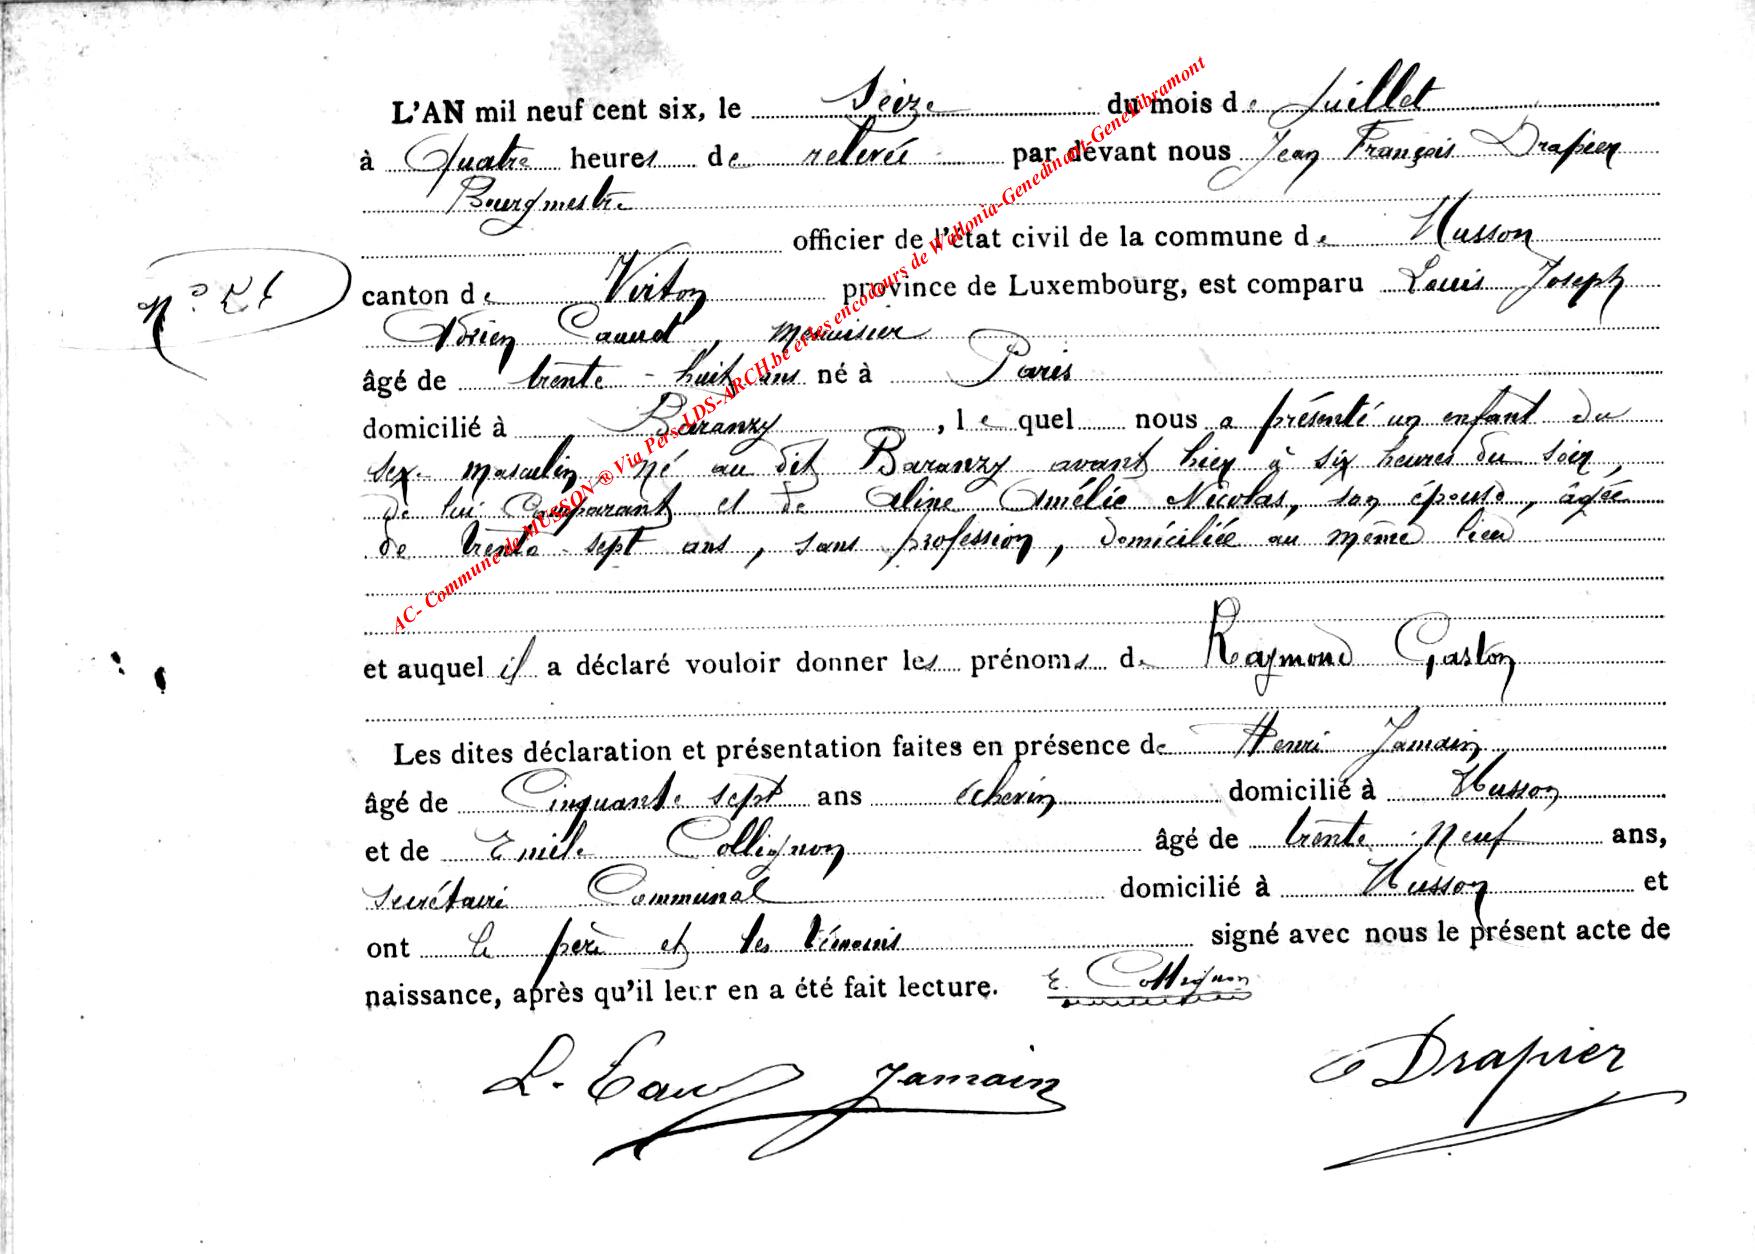 L'AN mil neuf cent six, le Seize du mois de Juillet
à Quatre heures de relevée par devant nous Jean François Drapier
Bourgmestre
officier de l'état civil de la commune de Musson
N° 51
canton de Virton province de Luxembourg, est comparu Louis Joseph
Adrien, menuisier
âgé de trente-huit ans né à Paris
domicilié à Baranzy, lequel nous a présenté un enfant du
sexe masculin né au dit Baranzy avant hier à six heures du soir,
de lui comparant et de Aline Amélie Nicolas, son épouse, âgée
de trente-sept ans, sans profession, domiciliée au même lieu
et auquel il a déclaré vouloir donner les prénoms de Raymond Gaston
Les dites déclaration et présentation faites en présence de Henri Jamain,
âgé de Cinquante sept ans échevin domicilié à Musson
et de Emile Collignon âgé de trente-neuf ans,
secrétaire Communal domicilié à Musson et
ont le père et les témoins signé avec nous le présent acte de
naissance, après qu'il leur en a été fait lecture. E. Collignon
L. Jamain Drapier
AC- Commune de MUSSON ® Via Pers-LDS-ARCH.be et les encodeurs de Wallonia-Genedinant-GeneaLibramont